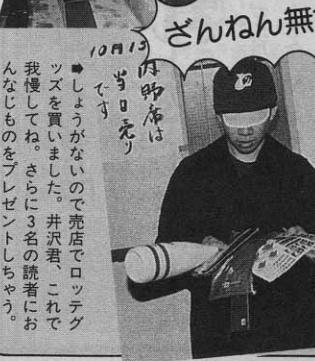 ざんねん無
10月13
内野席は
当日売り
です
➡しょうがないので売店でロッテグ
ッズを買いました。井沢君、これで
我慢してね。さらに3名の読者にお
んなじものをプレゼントしちゃう。